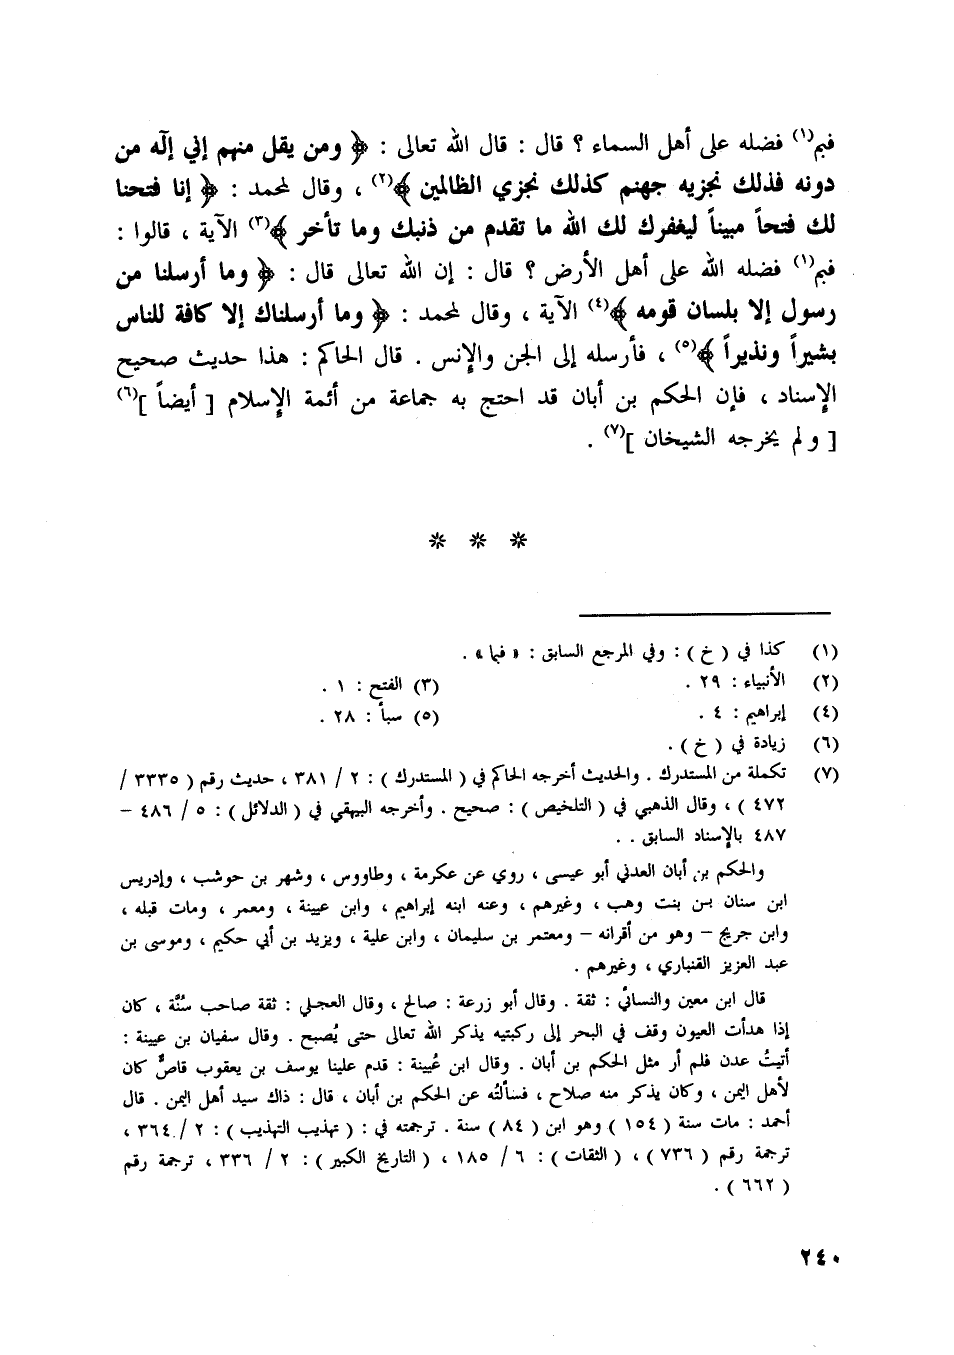 فبم(١) فضله على أهل السماء ؟ قال : قال الله تعالى : ﴿ ومن يقل منهم إني إلٓه من
دونه فذلك نجزيه جهنم كذلك نجزي الظالمين ﴾(٢) ، وقال لمحمد : ﴿ إنا فتحنا
لك فتحاً مبيناً ليغفرك لك الله ما تقدم من ذنبك وما تأخر ﴾(٣) الآية ، قالوا :
فبم(١) فضله الله على أهل الأرض ؟ قال : إن الله تعالى قال : ﴿ وما أرسلنا من
رسول إلا بلسان قومه ﴾(٤) الآية ، وقال لمحمد : ﴿ وما أرسلناك إلا كافة للناس
بشيراً ونذيراً ﴾(٥) ، فأرسله إلى الجن والإنس . قال الحاكم : هذا حديث صحيح
الإسناد ، فإن الحكم بن أبان قد احتج به جماعة من أئمة الإسلام [ أيضاً ](٦)
[ و لم يخرجه الشيخان ](٧) .
* * *
(١) كذا في ( خ ) : وفي المرجع السابق : « فبما » .
(٢) الأنبياء : ٢٩ . (٣) الفتح : ١ .
(٤) إبراهيم : ٤ . (٥) سبأ : ٢٨ .
(٦) زيادة في ( خ ) .
(٧) تكملة من المستدرك . والحديث أخرجه الحاكم في ( المستدرك ) : ٢ / ٣٨١ ، حديث رقم ( ٣٣٣٥ /
٤٧٢ ) ، وقال الذهبي في ( التلخيص ) : صحيح . وأخرجه البيهقي في ( الدلائل ) : ٥ / ٤٨٦ –
٤٨٧ بالإسناد السابق . .
والحكم بن أبان العدني أبو عيسى ، روي عن عكرمة ، وطاووس ، وشهر بن حوشب ، وإدريس
ابن سنان بن بنت وهب ، وغيرهم ، وعنه ابنه إبراهيم ، وابن عيينة ، ومعمر ، ومات قبله ،
وابن جريج – وهو من أقرانه – ومعتمر بن سليمان ، وابن علية ، ويزيد بن أبي حكيم ، وموسى بن
عبد العزيز القنباري ، وغيرهم .
قال ابن معين والنسائي : ثقة . وقال أبو زرعة : صالح ، وقال العجلي : ثقة صاحب سُنَّة ، كان
إذا هدأت العيون وقف في البحر إلى ركبتيه يذكر الله تعالى حتى يُصبح . وقال سفيان بن عيينة :
أتيتُ عدن فلم أر مثل الحكم بن أبان . وقال ابن عُيينة : قدم علينا يوسف بن يعقوب قاصٌّ كان
لأهل اليمن ، وكان يذكر منه صلاح ، فسألتُه عن الحكم بن أبان ، قال : ذاك سيد أهل اليمن . قال
أحمد : مات سنة ( ١٥٤ ) وهو ابن ( ٨٤ ) سنة . ترجمته في : ( تهذيب التهذيب ) : ٢ / ٣٦٤ ،
ترجمة رقم ( ٧٣٦ ) ، ( الثقات ) : ٦ / ١٨٥ ، ( التاريخ الكبير ) : ٢ / ٣٣٦ ، ترجمة رقم
( ٦٦٢ ) .
٢٤٠